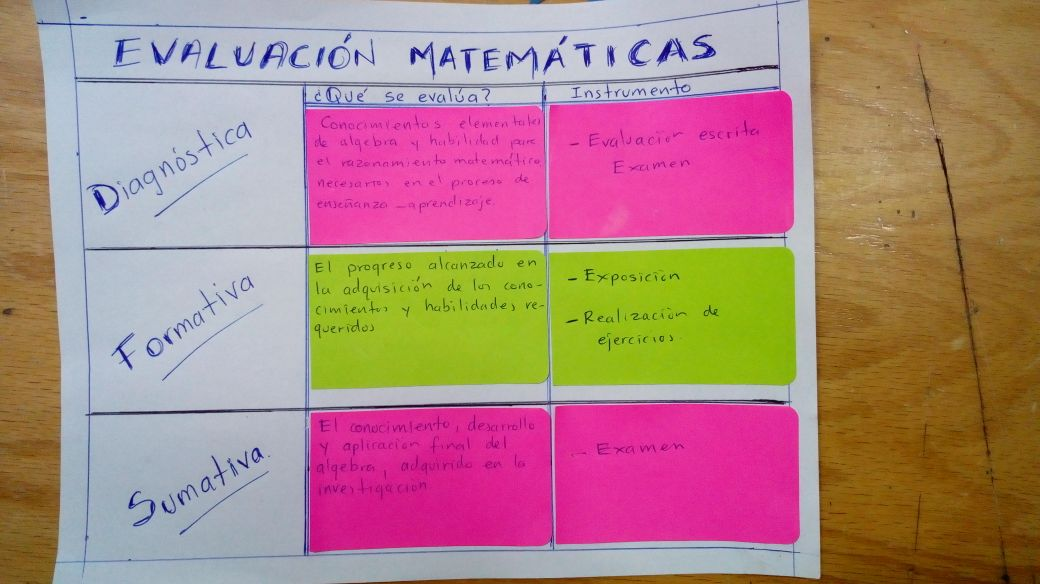 EVALUACIÓN MATEMÁTICAS
¿Qué se evalúa?
Instrumento
Diagnóstica
Conocimientos elementales
de algebra y habilidad para
el razonamiento matemático
necesarios en el proceso de
enseñanza -aprendizaje.
- Evaluación escrita
Examen
Formativa
El progreso alcanzado en
la adquisición de los cono-
cimientos y habilidades re-
queridos
- Exposición
- Realización de
ejercicios.
Sumativa.
El conocimiento, desarrollo
y aplicación final del
algebra, adquirido en la
investigación.
- Examen